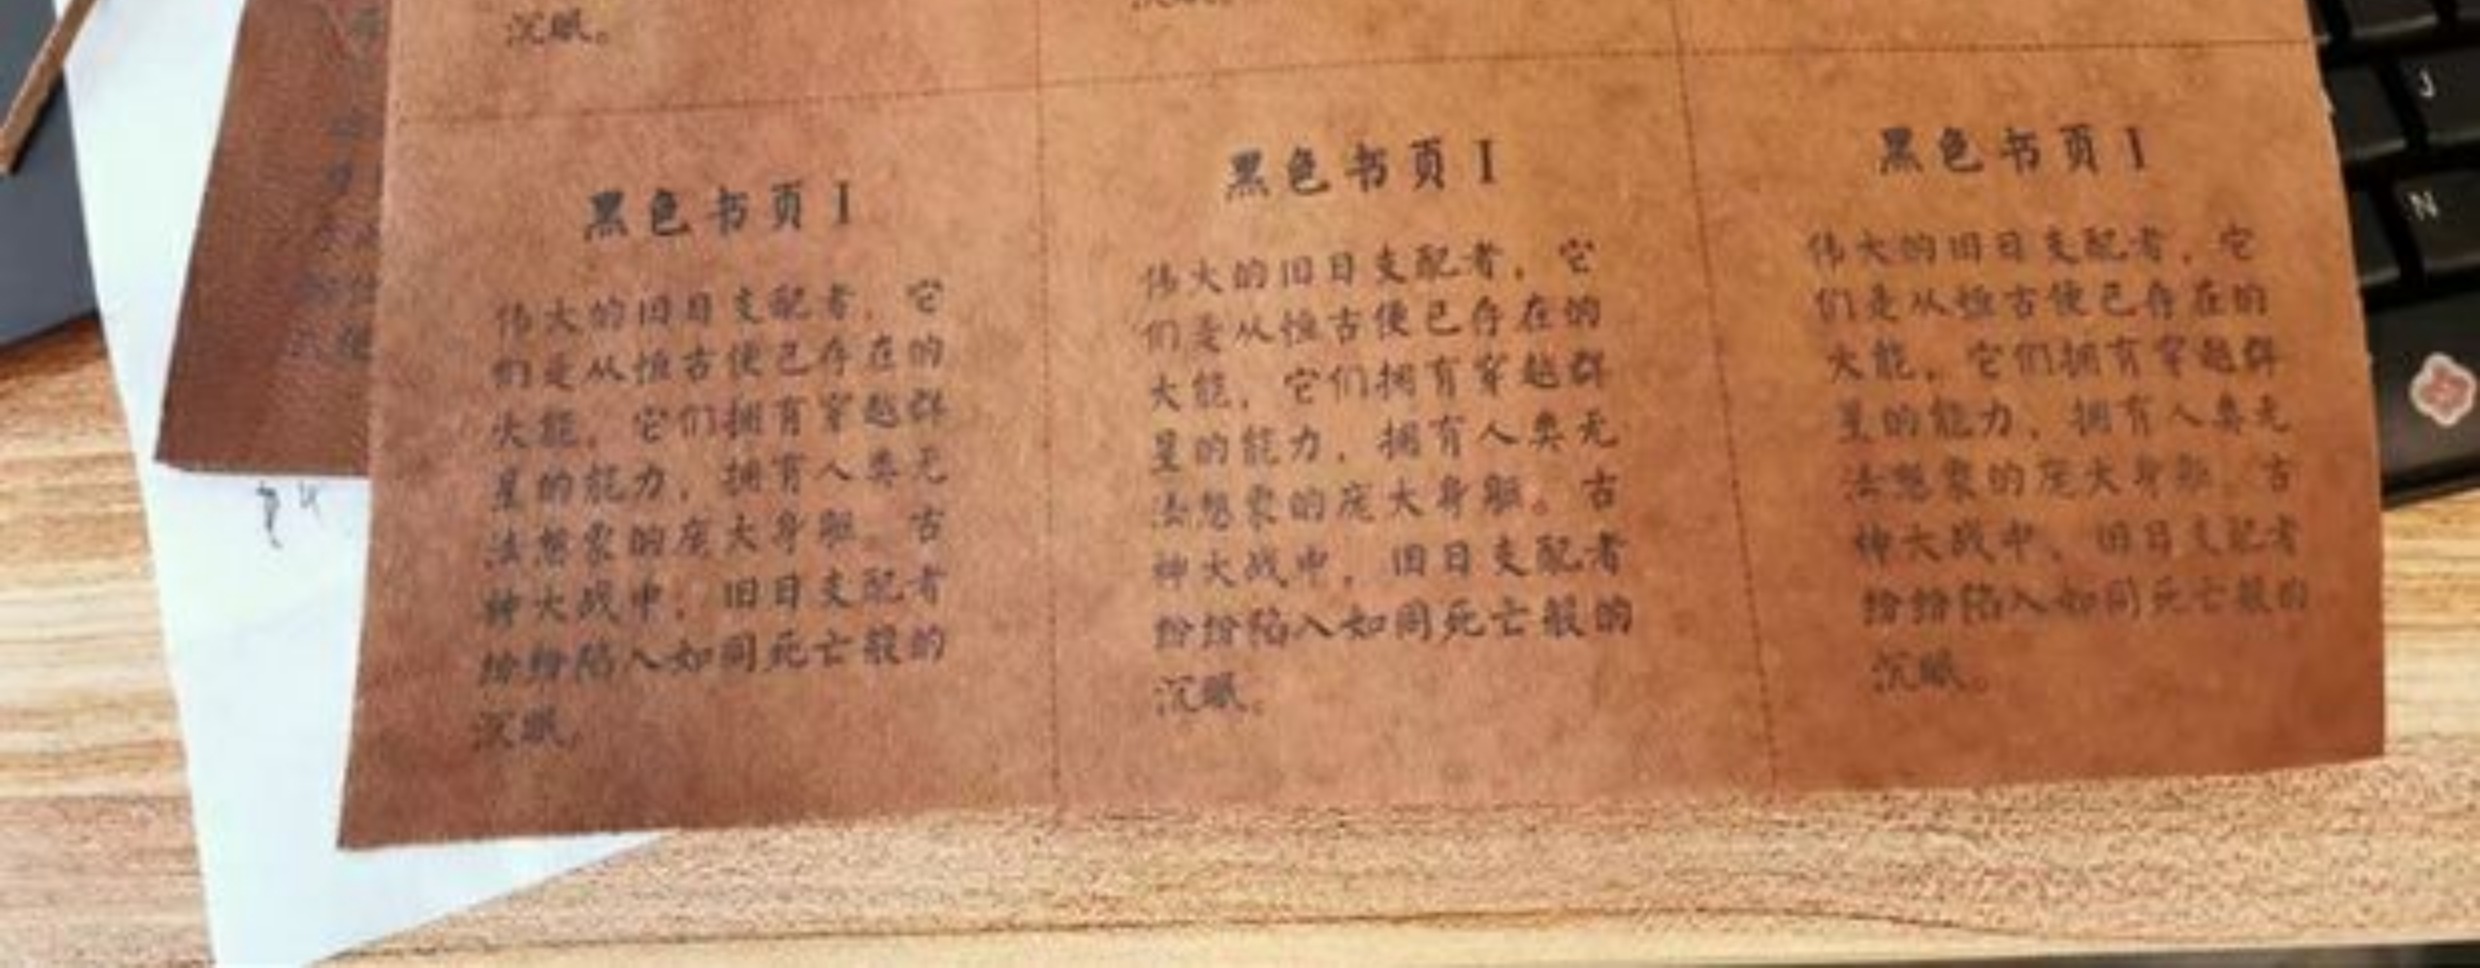 沉眠。
黑色书页I
伟大的旧日支配者，它
们是从恒古便已存在的
大能，它们拥有穿越群
星的能力，拥有人类无
法想象的庞大身躯。古
神大战中，旧日支配者
纷纷陷入如同死亡般的
沉眠。
黑色书页I
伟大的旧日支配者，它
们是从恒古便已存在的
大能，它们拥有穿越群
星的能力，拥有人类无
法想象的庞大身躯。古
神大战中，旧日支配者
纷纷陷入如同死亡般的
沉眠。
黑色书页I
伟大的旧日支配者，它
们是从恒古便已存在的
大能，它们拥有穿越群
星的能力，拥有人类无
法想象的庞大身躯。古
神大战中，旧日支配者
纷纷陷入如同死亡般的
沉眠。
J
N